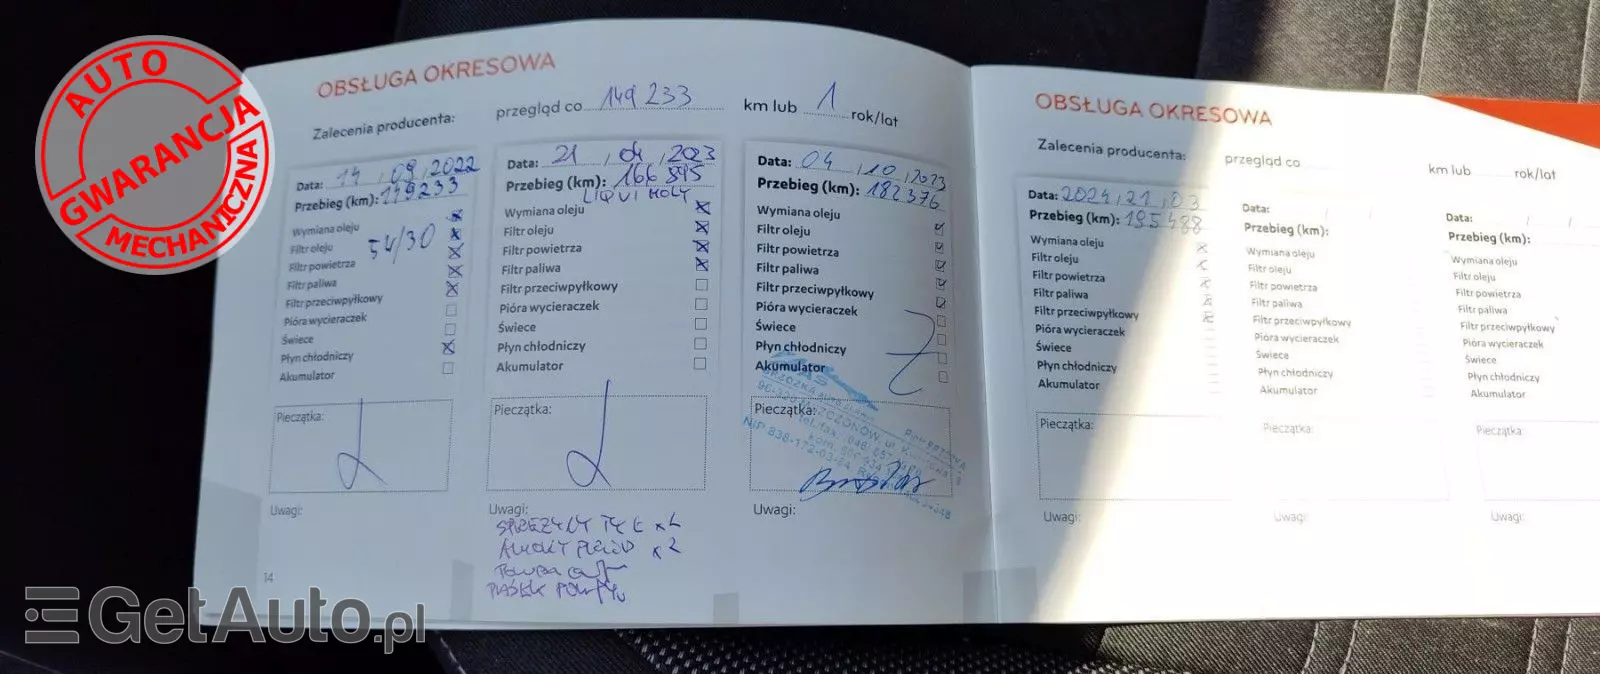 AUTO
GWARANCJA
MECHANICZNA
OBSŁUGA OKRESOWA
Zalecenia producenta: przegląd co 149 233 km lub 1 rok/lat
Data: 14, 09, 2022
Przebieg (km): 149233
Wymiana oleju
Filtr oleju 54/30
Filtr powietrza
Filtr paliwa
Filtr przeciwpyłkowy
Pióra wycieraczek
Świece
Płyn chłodniczy
Akumulator
Pieczątka:
Uwagi:
14
Data: 21, 04, 2023
Przebieg (km): 166 845
LIQUI MOLY
Wymiana oleju
Filtr oleju
Filtr powietrza
Filtr paliwa
Filtr przeciwpyłkowy
Pióra wycieraczek
Świece
Płyn chłodniczy
Akumulator
Pieczątka:
Uwagi:
SPRĘŻYNY TYŁ
x 2
Data: 04, 10, 2023
Przebieg (km): 182376
Wymiana oleju
Filtr oleju
Filtr powietrza
Filtr paliwa
Filtr przeciwpyłkowy
Pióra wycieraczek
Świece
Płyn chłodniczy
Akumulator
Pieczątka:
NIP 838-172-03-24
Uwagi:
OBSŁUGA OKRESOWA
Zalecenia producenta: przegląd co km lub rok/lat
Data: 2024, 21, 03
Przebieg (km): 195488
Wymiana oleju
Filtr oleju
Filtr powietrza
Filtr paliwa
Filtr przeciwpyłkowy
Pióra wycieraczek
Świece
Płyn chłodniczy
Akumulator
Pieczątka:
Uwagi:
Data:
Przebieg (km):
Wymiana oleju
Filtr oleju
Filtr powietrza
Filtr paliwa
Filtr przeciwpyłkowy
Pióra wycieraczek
Świece
Płyn chłodniczy
Akumulator
Pieczątka:
Uwagi:
Data:
Przebieg (km):
Wymiana oleju
Filtr oleju
Filtr powietrza
Filtr paliwa
Filtr przeciwpyłkowy
Pióra wycieraczek
Świece
Płyn chłodniczy
Akumulator
Pieczątka:
Uwagi:
GetAuto.pl